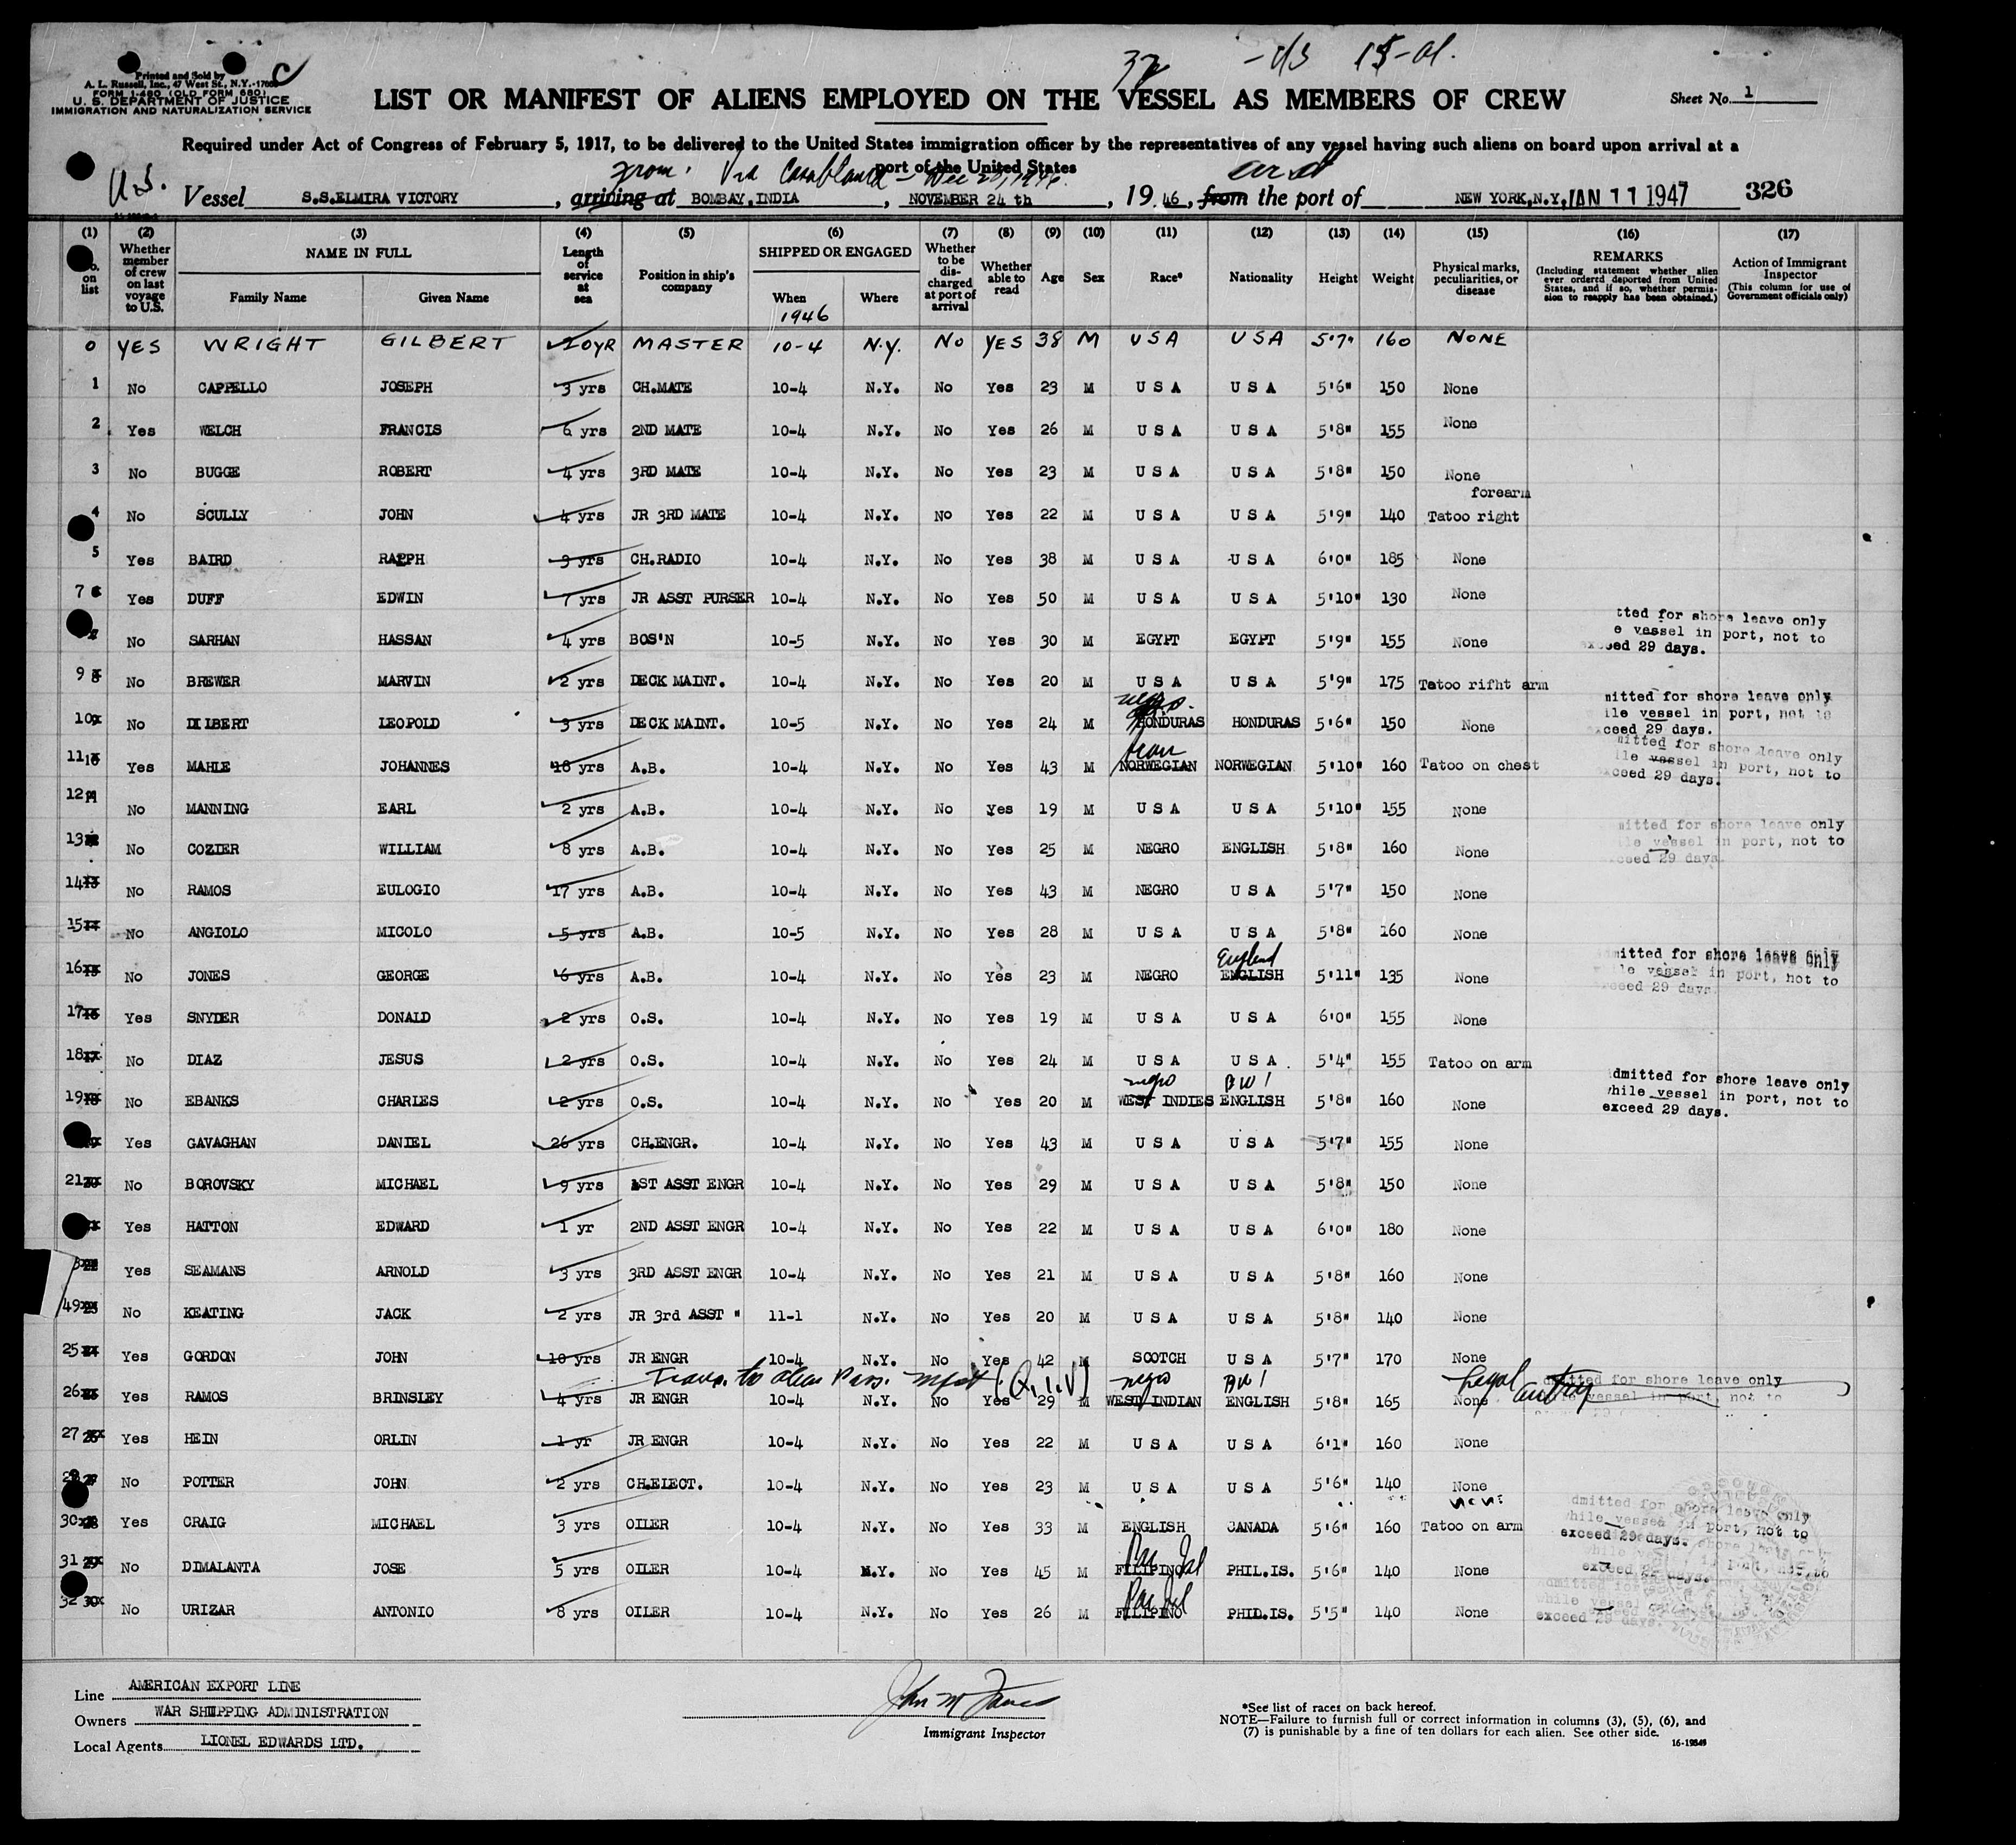 Printed and Sold by
A. L. Russell, Inc., 47 West St., N.Y.
FORM I-480 (OLD FORM 680)
U. S. DEPARTMENT OF JUSTICE
IMMIGRATION AND NATURALIZATION SERVICE
LIST OR MANIFEST OF ALIENS EMPLOYED ON THE VESSEL AS MEMBERS OF CREW
Sheet No. 1
Required under Act of Congress of February 5, 1917, to be delivered to the United States immigration officer by the representatives of any vessel having such aliens on board upon arrival at a
port of the United States
From: Via Casablanca
U.S. Vessel S.S.ELMIRA VICTORY, arriving at BOMBAY,INDIA, NOVEMBER 24 th, 19 46, from the port of NEW YORK,N.Y, JAN 11 1947 326
(1) (2) (3) (4) (5) (6) (7) (8) (9) (10) (11) (12) (13) (14) (15) (16) (17)
No. on list Whether member of crew on last voyage to U.S. NAME IN FULL Family Name Given Name Length of service at sea Position in ship's company SHIPPED OR ENGAGED When 1946 Where Whether to be discharged at port of arrival Whether able to read Age Sex Race* Nationality Height Weight Physical marks, peculiarities, or disease REMARKS (Including statement whether alien ever ordered deported from United States, and if so, whether permission to reapply has been obtained.) Action of Immigrant Inspector (This column for use of Government officials only)
0 YES WRIGHT GILBERT 20YR MASTER 10-4 N.Y. No YES 38 M USA USA 5'7" 160 NONE
1 No CAPPELLO JOSEPH 3 yrs CH.MATE 10-4 N.Y. No Yes 23 M U S A U S A 5'6" 150 None
2 Yes WELCH FRANCIS 6 yrs 2ND MATE 10-4 N.Y. No Yes 26 M U S A U S A 5'8" 155 None
3 No BUGGE ROBERT 4 yrs 3RD MATE 10-4 N.Y. No Yes 23 M U S A U S A 5'8" 150 None
forearm
4 No SCULLY JOHN 4 yrs JR 3RD MATE 10-4 N.Y. No Yes 22 M U S A U S A 5'9" 140 Tatoo right
5 Yes BAIRD RALPH 3 yrs CH.RADIO 10-4 N.Y. No Yes 38 M U S A U S A 6'0" 185 None
7 Yes DUFF EDWIN 7 yrs JR ASST PURSER 10-4 N.Y. No Yes 50 M U S A U S A 5'10" 130 None
No SARHAN HASSAN 4 yrs BOS'N 10-5 N.Y. No Yes 30 M EGYPT EGYPT 5'9" 155 None tted for shore leave only e vessel in port, not to exceed 29 days.
9 No BREWER MARVIN 2 yrs DECK MAINT. 10-4 N.Y. No Yes 20 M U S A U S A 5'9" 175 Tatoo rifht arm
10 No DILBERT LEOPOLD 3 yrs DECK MAINT. 10-5 N.Y. No Yes 24 M negro HONDURAS HONDURAS 5'6" 150 None mitted for shore leave only ile vessel in port, not to ceed 29 days.
11 Yes MAHLE JOHANNES 18 yrs A.B. 10-4 N.Y. No Yes 43 M Scan NORWEGIAN NORWEGIAN 5'10" 160 Tatoo on chest mitted for shore leave only ile vessel in port, not to ceed 29 days.
12 No MANNING EARL 2 yrs A.B. 10-4 N.Y. No Yes 19 M U S A U S A 5'10" 155 None
13 No COZIER WILLIAM 8 yrs A.B. 10-4 N.Y. No Yes 25 M NEGRO ENGLISH 5'8" 160 None mitted for shore leave only le vessel in port, not to ceed 29 days.
14 No RAMOS EULOGIO 17 yrs A.B. 10-4 N.Y. No Yes 43 M NEGRO U S A 5'7" 150 None
15 No ANGIOLO MICOLO 5 yrs A.B. 10-5 N.Y. No Yes 28 M U S A U S A 5'8" 160 None
16 No JONES GEORGE 6 yrs A.B. 10-4 N.Y. No Yes 23 M NEGRO England ENGLISH 5'11" 135 None mitted for shore leave only le vessel in port, not to ceed 29 days
17 Yes SNYDER DONALD 2 yrs O.S. 10-4 N.Y. No Yes 19 M U S A U S A 6'0" 155 None
18 No DIAZ JESUS 2 yrs O.S. 10-4 N.Y. No Yes 24 M U S A U S A 5'4" 155 Tatoo on arm
19 No EBANKS CHARLES 2 yrs O.S. 10-4 N.Y. No Yes 20 M negro WEST INDIES BWI ENGLISH 5'8" 160 None dmitted for shore leave only while vessel in port, not to exceed 29 days.
Yes GAVAGHAN DANIEL 26 yrs CH.ENGR. 10-4 N.Y. No Yes 43 M U S A U S A 5'7" 155 None
21 No BOROVSKY MICHAEL 9 yrs 1ST ASST ENGR 10-4 N.Y. No Yes 29 M U S A U S A 5'8" 150 None
Yes HATTON EDWARD 1 yr 2ND ASST ENGR 10-4 N.Y. No Yes 22 M U S A U S A 6'0" 180 None
Yes SEAMANS ARNOLD 3 yrs 3RD ASST ENGR 10-4 N.Y. No Yes 21 M U S A U S A 5'8" 160 None
No KEATING JACK 2 yrs JR 3rd ASST " 11-1 N.Y. No Yes 20 M U S A U S A 5'8" 140 None
25 Yes GORDON JOHN 10 yrs JR ENGR 10-4 N.Y. No Yes 42 M SCOTCH U S A 5'7" 170 None
Trans. to alien Pass. mfst (Q.I.V)
26 Yes RAMOS BRINSLEY 4 yrs JR ENGR 10-4 N.Y. No Yes 29 M negro WEST INDIAN BWI ENGLISH 5'8" 165 None Legal entry mitted for shore leave only vessel in port, not to
27 Yes HEIN ORLIN 1 yr JR ENGR 10-4 N.Y. No Yes 22 M U S A U S A 6'1" 160 None
No POTTER JOHN 2 yrs CH.ELECT. 10-4 N.Y. No Yes 23 M U S A U S A 5'6" 140 None
30 Yes CRAIG MICHAEL 3 yrs OILER 10-4 N.Y. No Yes 33 M ENGLISH CANADA 5'6" 160 Tatoo on arm dmitted for shore leave only while vessel in port, not to exceed 29 days.
31 No DIMALANTA JOSE 5 yrs OILER 10-4 N.Y. No Yes 45 M FILIPINO PHIL.IS. 5'6" 140 None exceed 29 days.
32 No URIZAR ANTONIO 8 yrs OILER 10-4 N.Y. No Yes 26 M FILIPINO PHIL.IS. 5'5" 140 None exceed 29 days.
Line AMERICAN EXPORT LINE
Owners WAR SHIPPING ADMINISTRATION
Local Agents LIONEL EDWARDS LTD.
Immigrant Inspector
*See list of races on back hereof.
NOTE—Failure to furnish full or correct information in columns (3), (5), (6), and
(7) is punishable by a fine of ten dollars for each alien. See other side.
16-19849